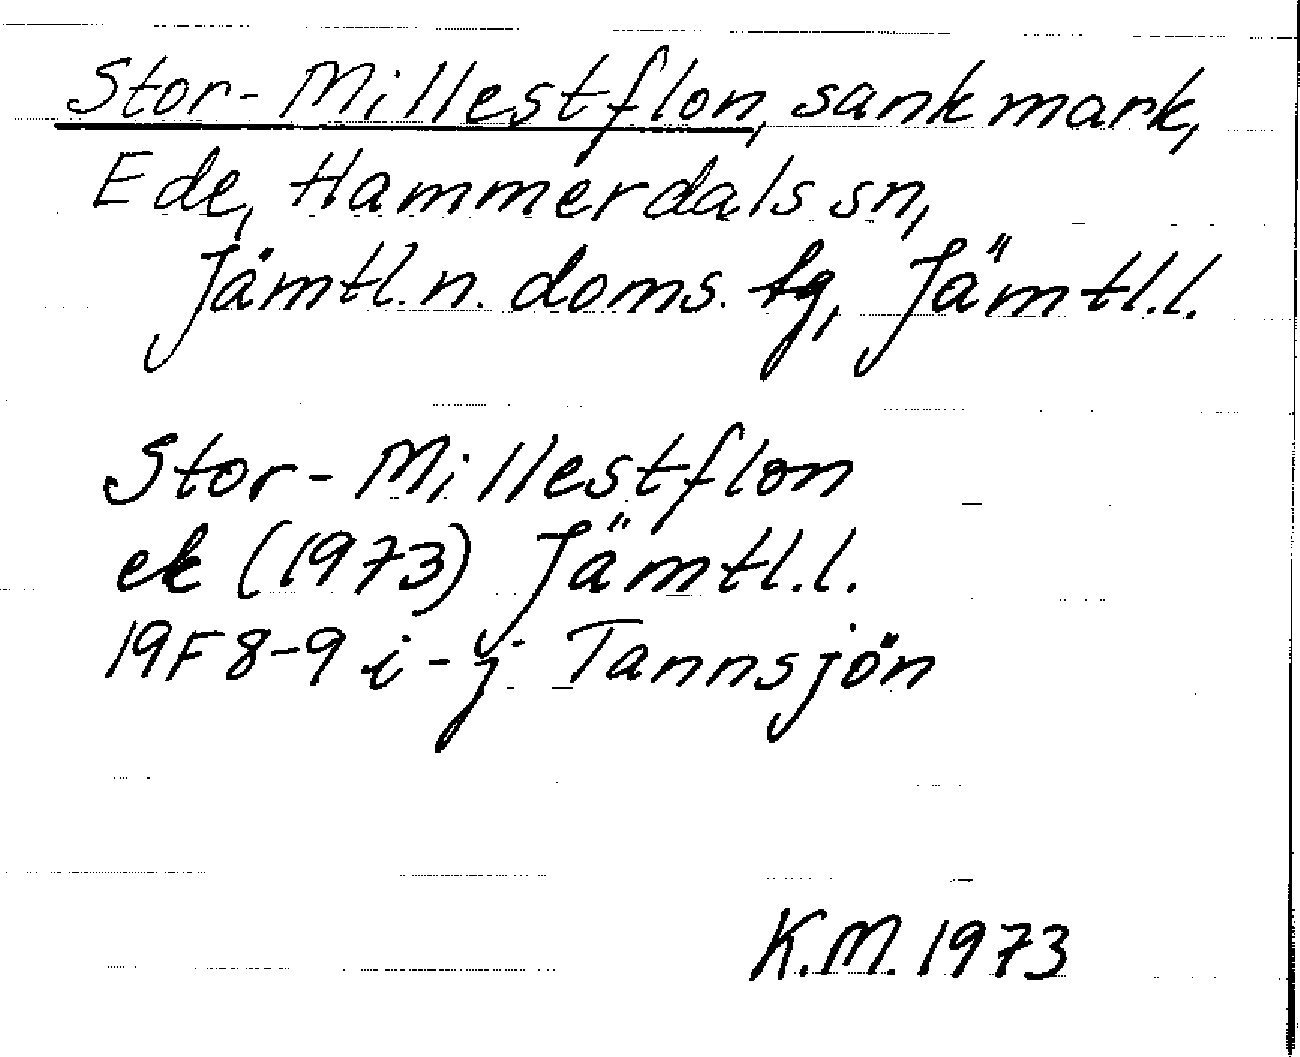 Stor-Millestflon, sankmark,
Ede, Hammerdals sn,
Jämtl. n. doms. tg, Jämtl.l.
Stor-Millestflon
ek (1973) Jämtl.l.
19F 8-9 i-j Tannsjön
K.M. 1973